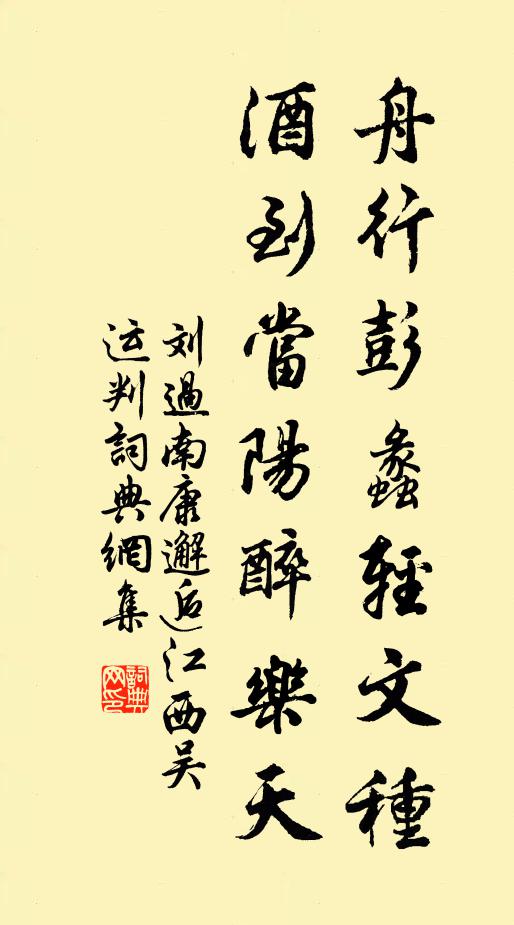 舟行彭蠡輕文種
酒到當陽醉樂天
刘過南康邂逅江西吴
运判詞典網集
詞典
网印